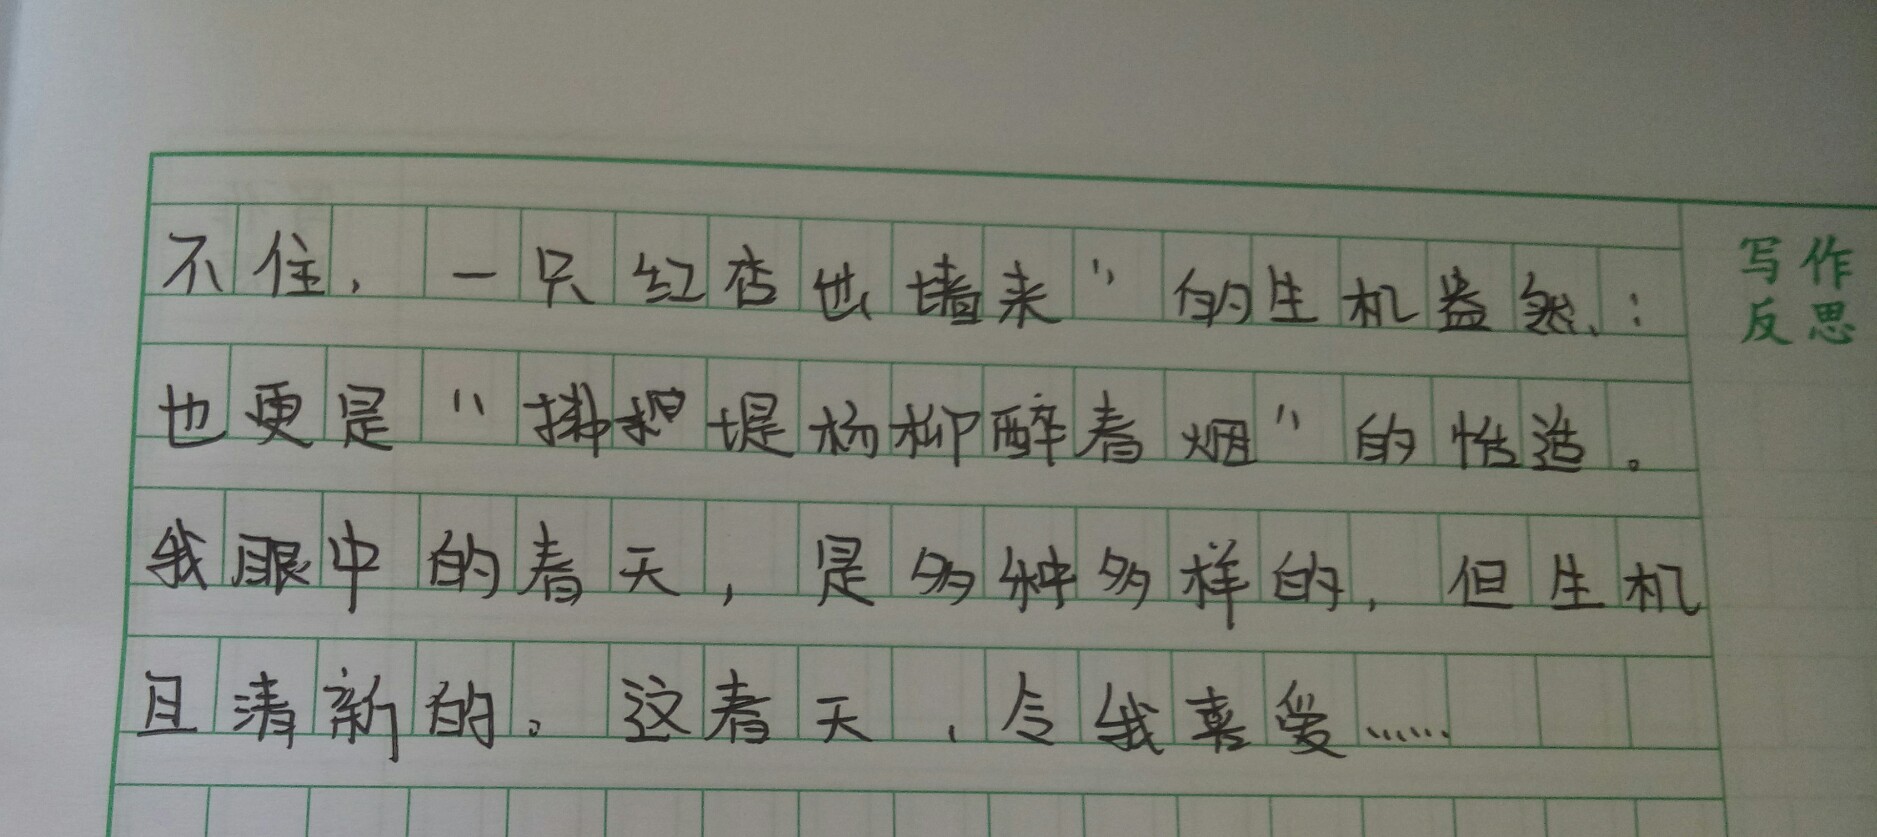 不住，一只红杏出墙来”的生机益然、：
写作
反思
也更是“拂堤杨柳醉春烟”的造。
我眼中的春天，是多种多样的，但生机
且清新的。这春天，令我喜爱……